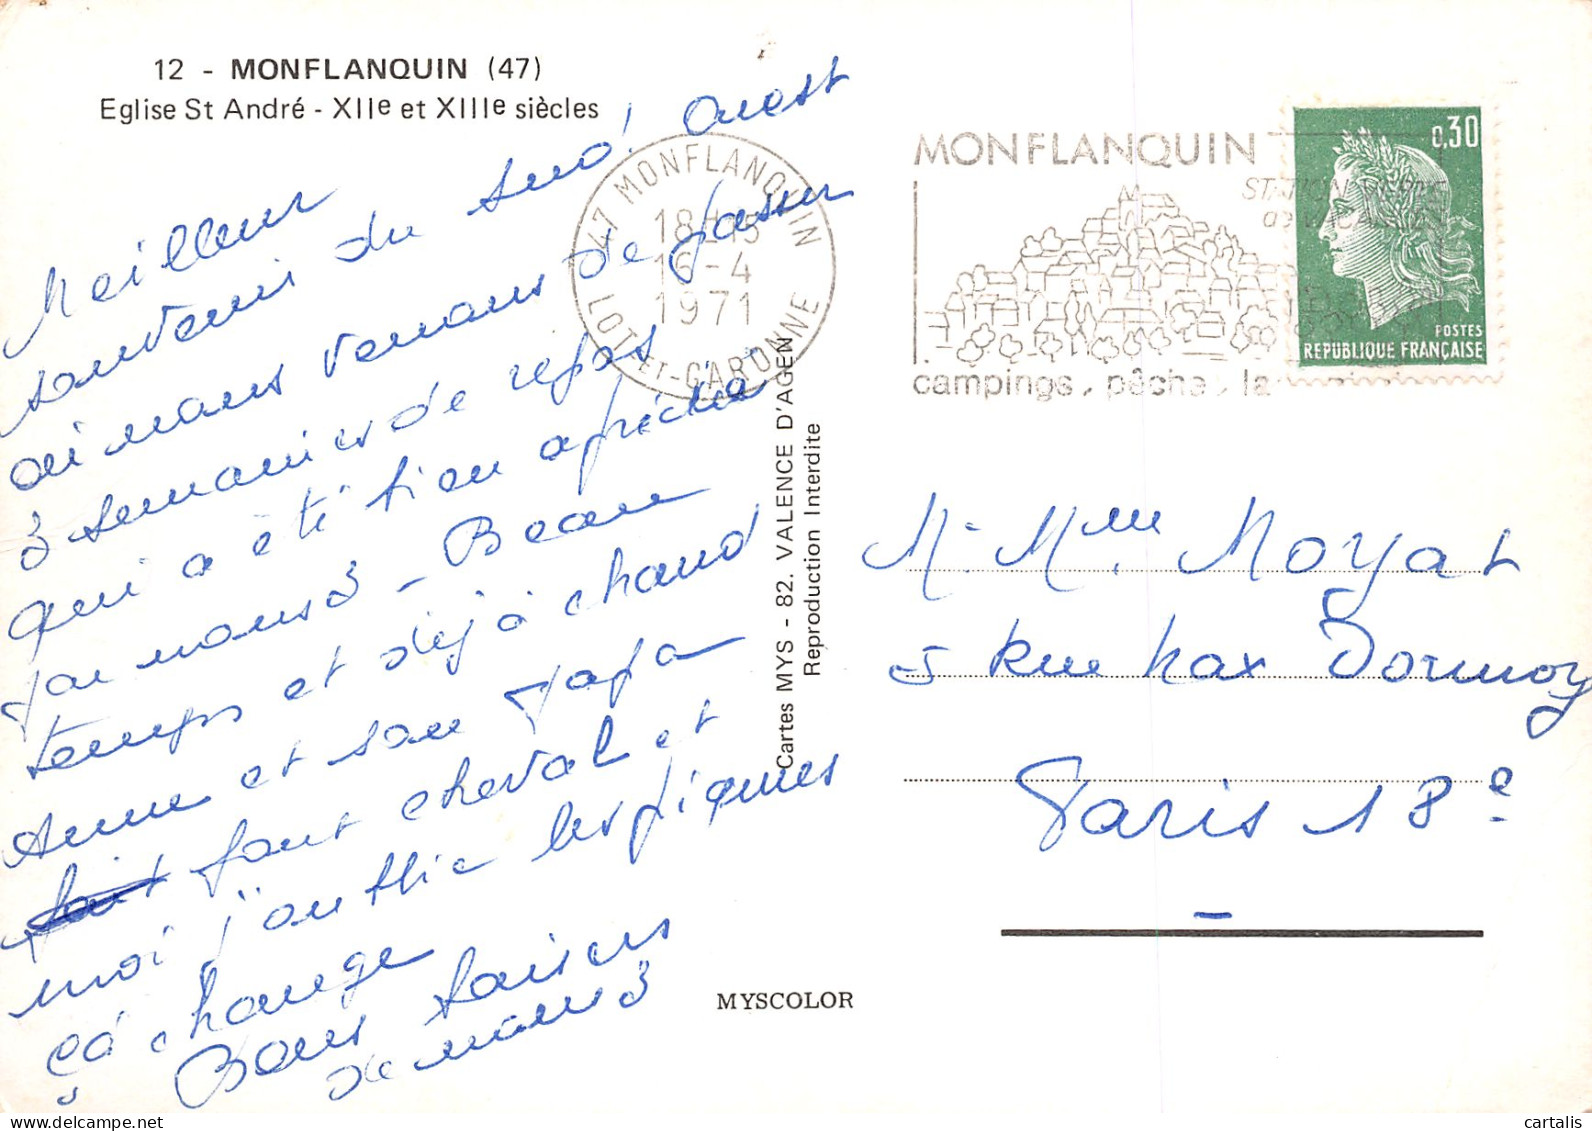 12 - MONFLANQUIN (47)
Eglise St André - XIIe et XIIIe siècles
Meilleur
souvenir du Sud Ouest
où nous venons de passer
3 semaines de repos
qui a été bien apprécié
par nous 3 - Beau
temps et déjà chaud
Anne et son papa
font cheval et
moi j'oublie les piqûres
ça change
Bons baisers
de nous 3
47 MONFLANQUIN
18H15
16-4
1971
LOT-ET-GARONNE
MONFLANQUIN
campings, pêche, la
0,30
POSTES
REPUBLIQUE FRANÇAISE
Cartes MYS - 82. VALENCE D'AGEN
Reproduction Interdite
M. Mme Moyat
5 Rue Max Dormoy
Paris 18e
MYSCOLOR
cartalis